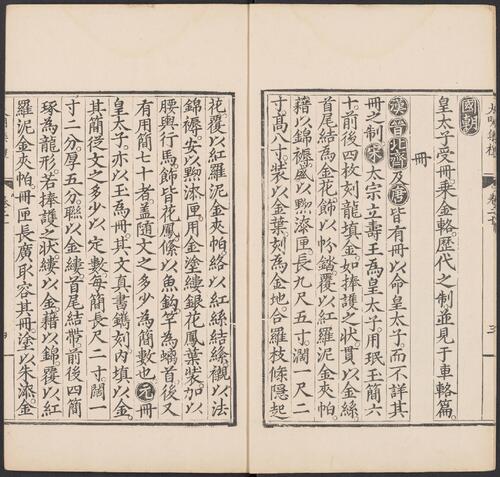 國朝
皇太子受冊乘金輅歷代之制並見于車輅篇
冊
漢晉北齊及唐皆有冊以命皇太子而不詳其
冊之制宋太宗立壽王為皇太子用珉玉簡六
十前後四枚刻龍填金如捧護之狀貫以金絲
首尾結為金花飾以帉錔覆以紅羅泥金夾帕
藉以錦褥盛以黝漆匣長九尺五寸濶一尺二
寸高八寸裝以金葉刻為金地合羅枝條隱起
花覆以紅羅泥金夾帕絡以紅絲結絛襯以法
錦褥安以黝漆匣用金塗縺銀花鳳葉裝加以
腰輿行馬飾皆花鳳絛以魚鈎竿為螭首後又
有用簡七十者蓋隨文之多少為簡數也元冊
皇太子亦以玉為冊其文真書鐫刻內填以金
其簡從文之多少以定數每簡長尺二寸闊一
寸二分厚五分聮以金縷首尾結帶前後四簡
琢為龍形若捧護之狀縷以金藉以錦覆以紅
羅泥金夾帕冊匣長廣取容其冊塗以朱漆金